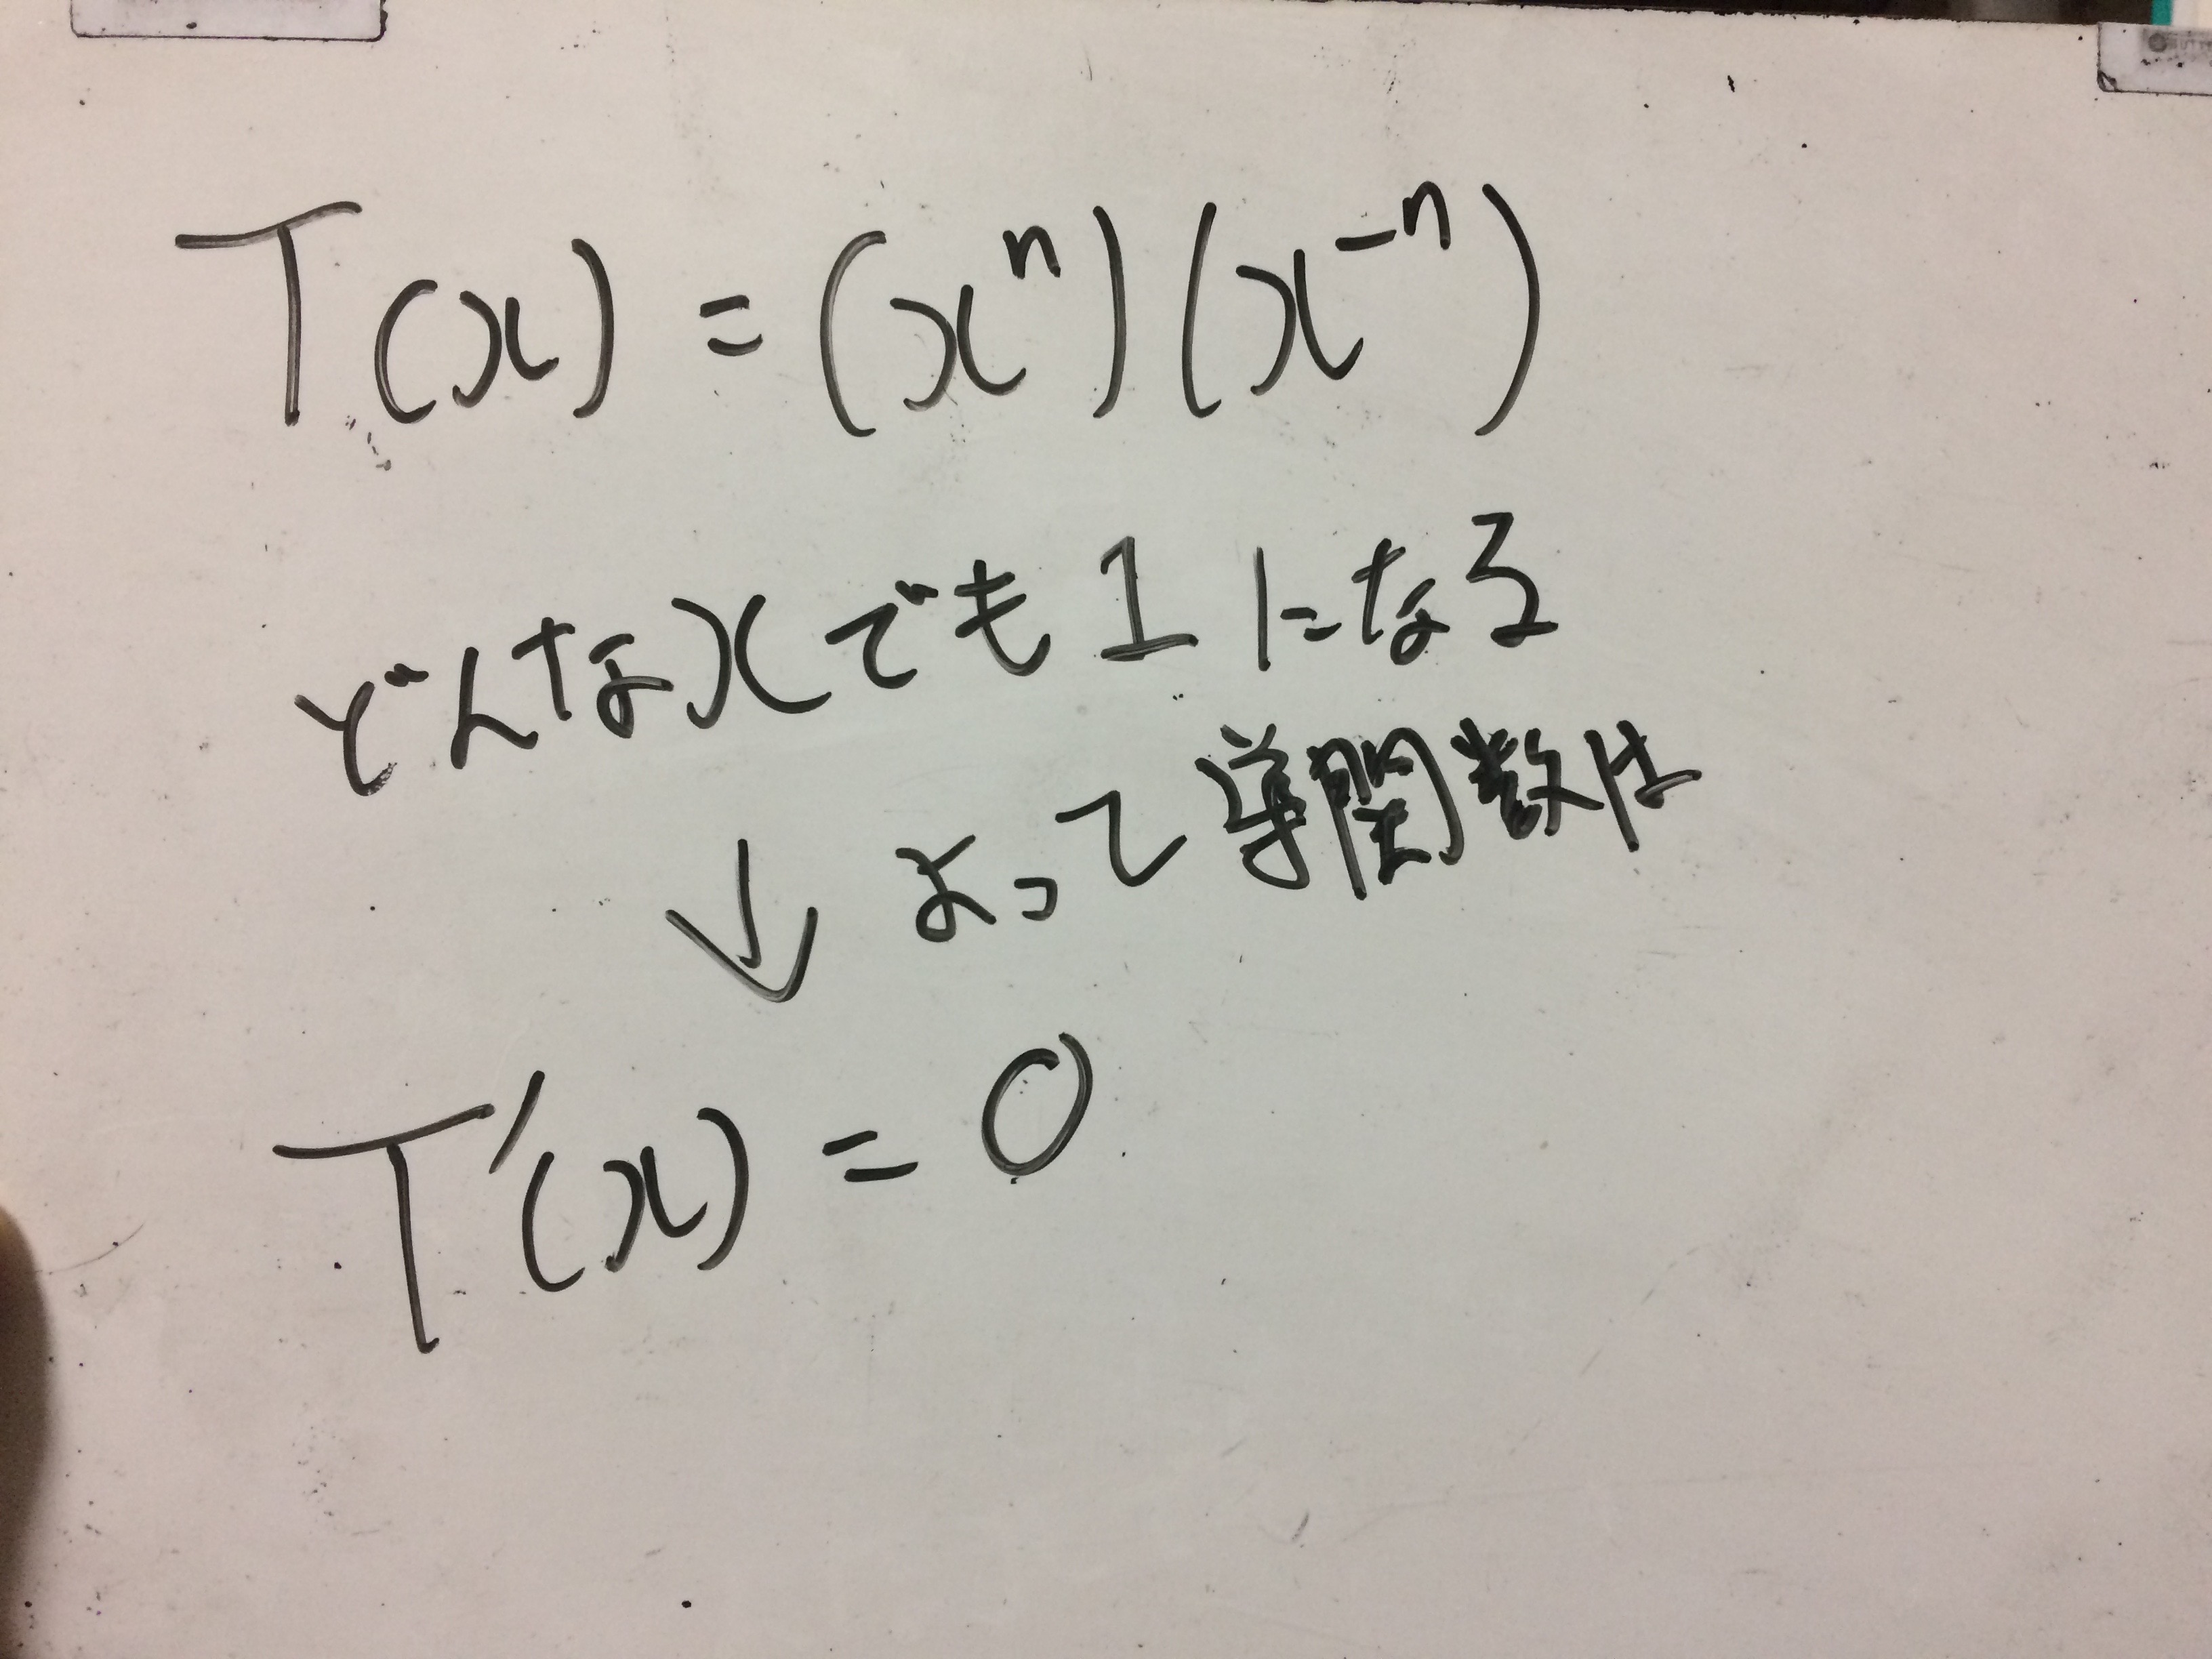 T(x) = (x^n)(x^-n)
どんなxでも1になる
↓ よって導関数は
T'(x) = 0